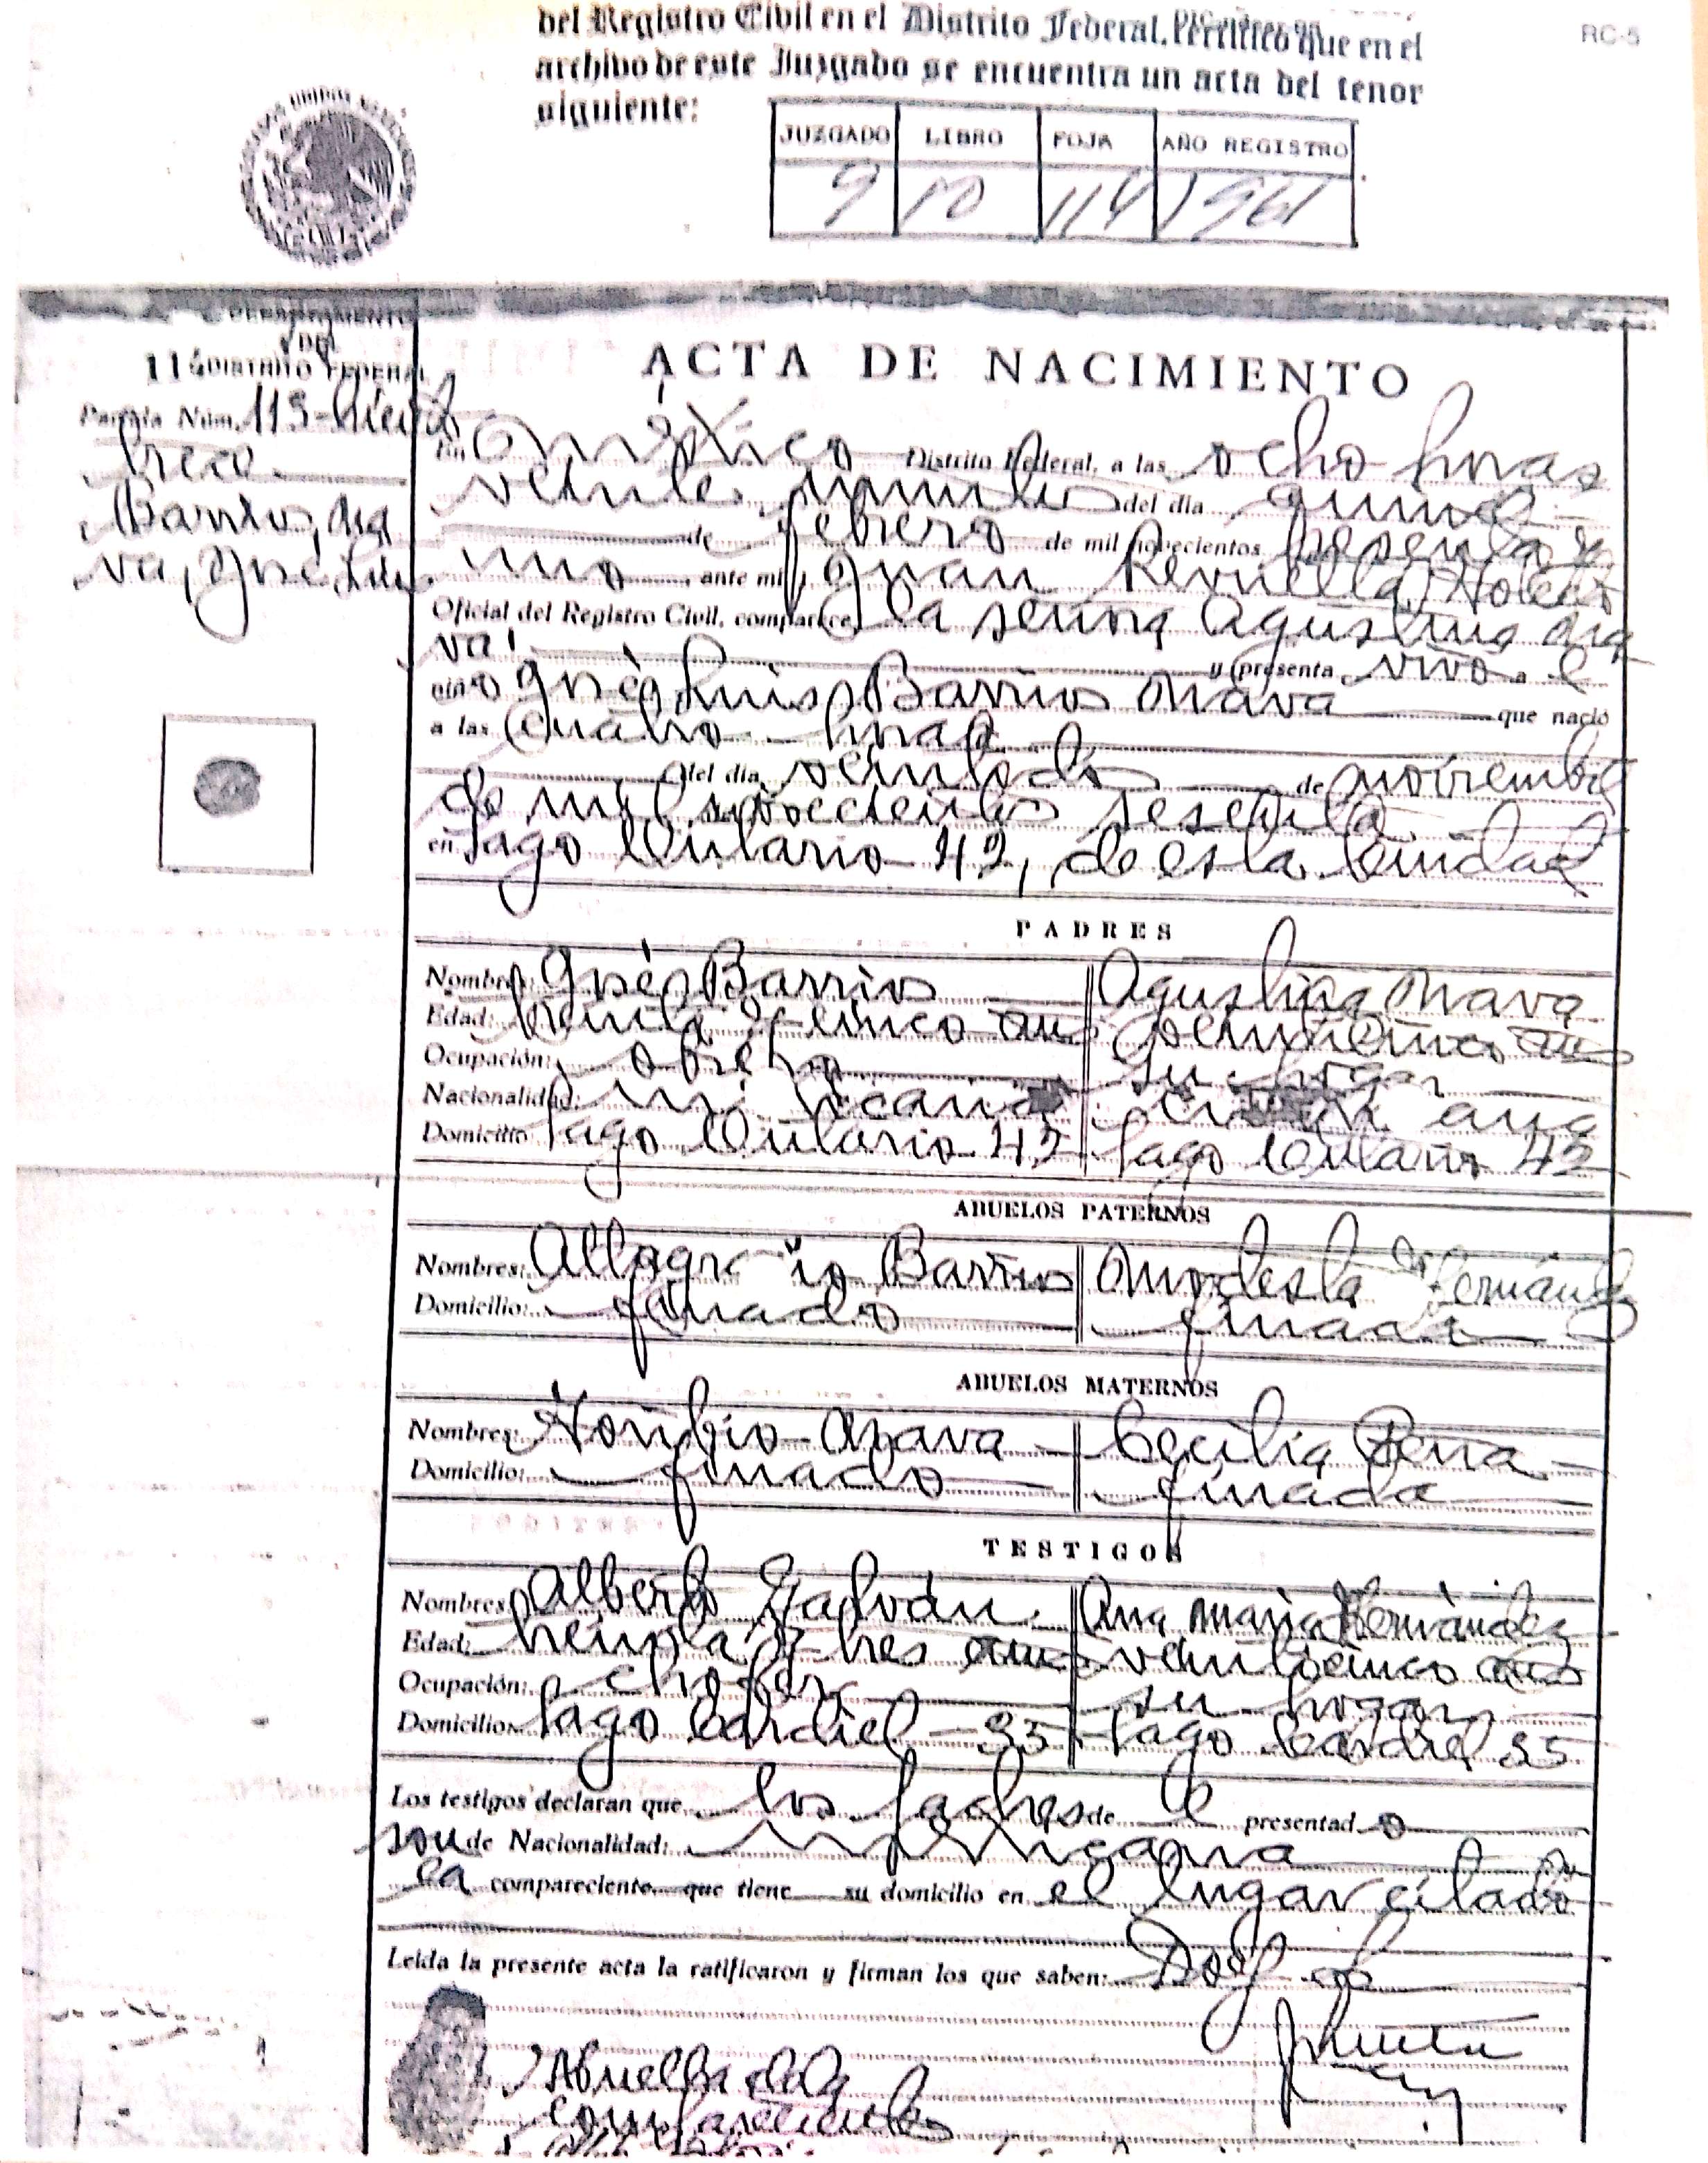 del Registro Civil en el Distrito Federal, certifico que en el
archivo de este Juzgado se encuentra un acta del tenor
siguiente:
RC-5
JUZGADO LIBRO FOJA AÑO REGISTRO
9 10 114 1961
ESTADOS UNIDOS MEXICANOS
DEPARTAMENTO
DEL
DISTRITO FEDERAL
114
Partida Núm. 113-ciento
trece
Barrios, Na
va, José Luis
ACTA DE NACIMIENTO
En México Distrito Federal, a las ocho horas
veinte minutos del día quince
de febrero de mil novecientos sesenta y
uno ante mi, Juan Revuelta Toledo
Oficial del Registro Civil, comparece la señora Agustina Na
va y presenta vivo a el
niño José Luis Barrios Nava que nació
a las cuatro horas
del día veintidos de noviembre
de mil novecientos sesenta
en Lago Ontario 42, de esta Ciudad
PADRES
Nombres: José Barrios Agustina Nava
Edad: treinta y cinco años veinticinco años
Ocupación: obrero su hogar
Nacionalidad: mexicana mexicana
Domicilio: Lago Ontario 42 Lago Ontario 42
ABUELOS PATERNOS
Nombres: Barrios Modesta Hernández
Domicilio: finado finada
ABUELOS MATERNOS
Nombres: Toribio Nava Cecilia Pena
Domicilio: finado finada
TESTIGOS
Nombres: Alberto Galván Ana María Hernández
Edad: treinta y tres años veinticinco años
Ocupación: chofer su hogar
Domicilio: Lago Cardiel 35 Lago Cardiel 35
Los testigos declaran que los padres de el presentado
son de Nacionalidad: mexicana
la compareciente que tiene su domicilio en el lugar citado
Leída la presente acta la ratificaron y firman los que saben: Doy fe
Huella de la
compareciente